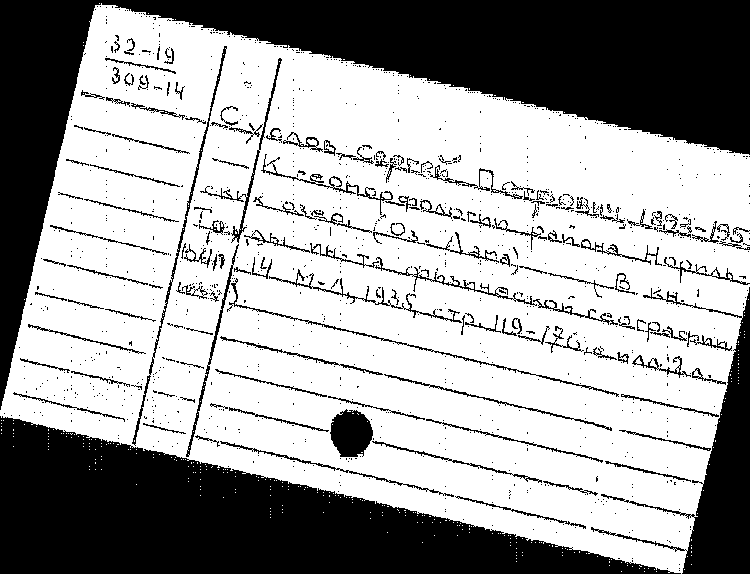 32-19
309-14
Суслов, Сергей Петрович, 1893-195
К геоморфологии района Нориль-
ских озер. (Оз. Лама) (В кн.:
Труды ин-та физической географии
вып. 14 М-Л, 1935, стр. 119-170, с илл; 2 л.
).